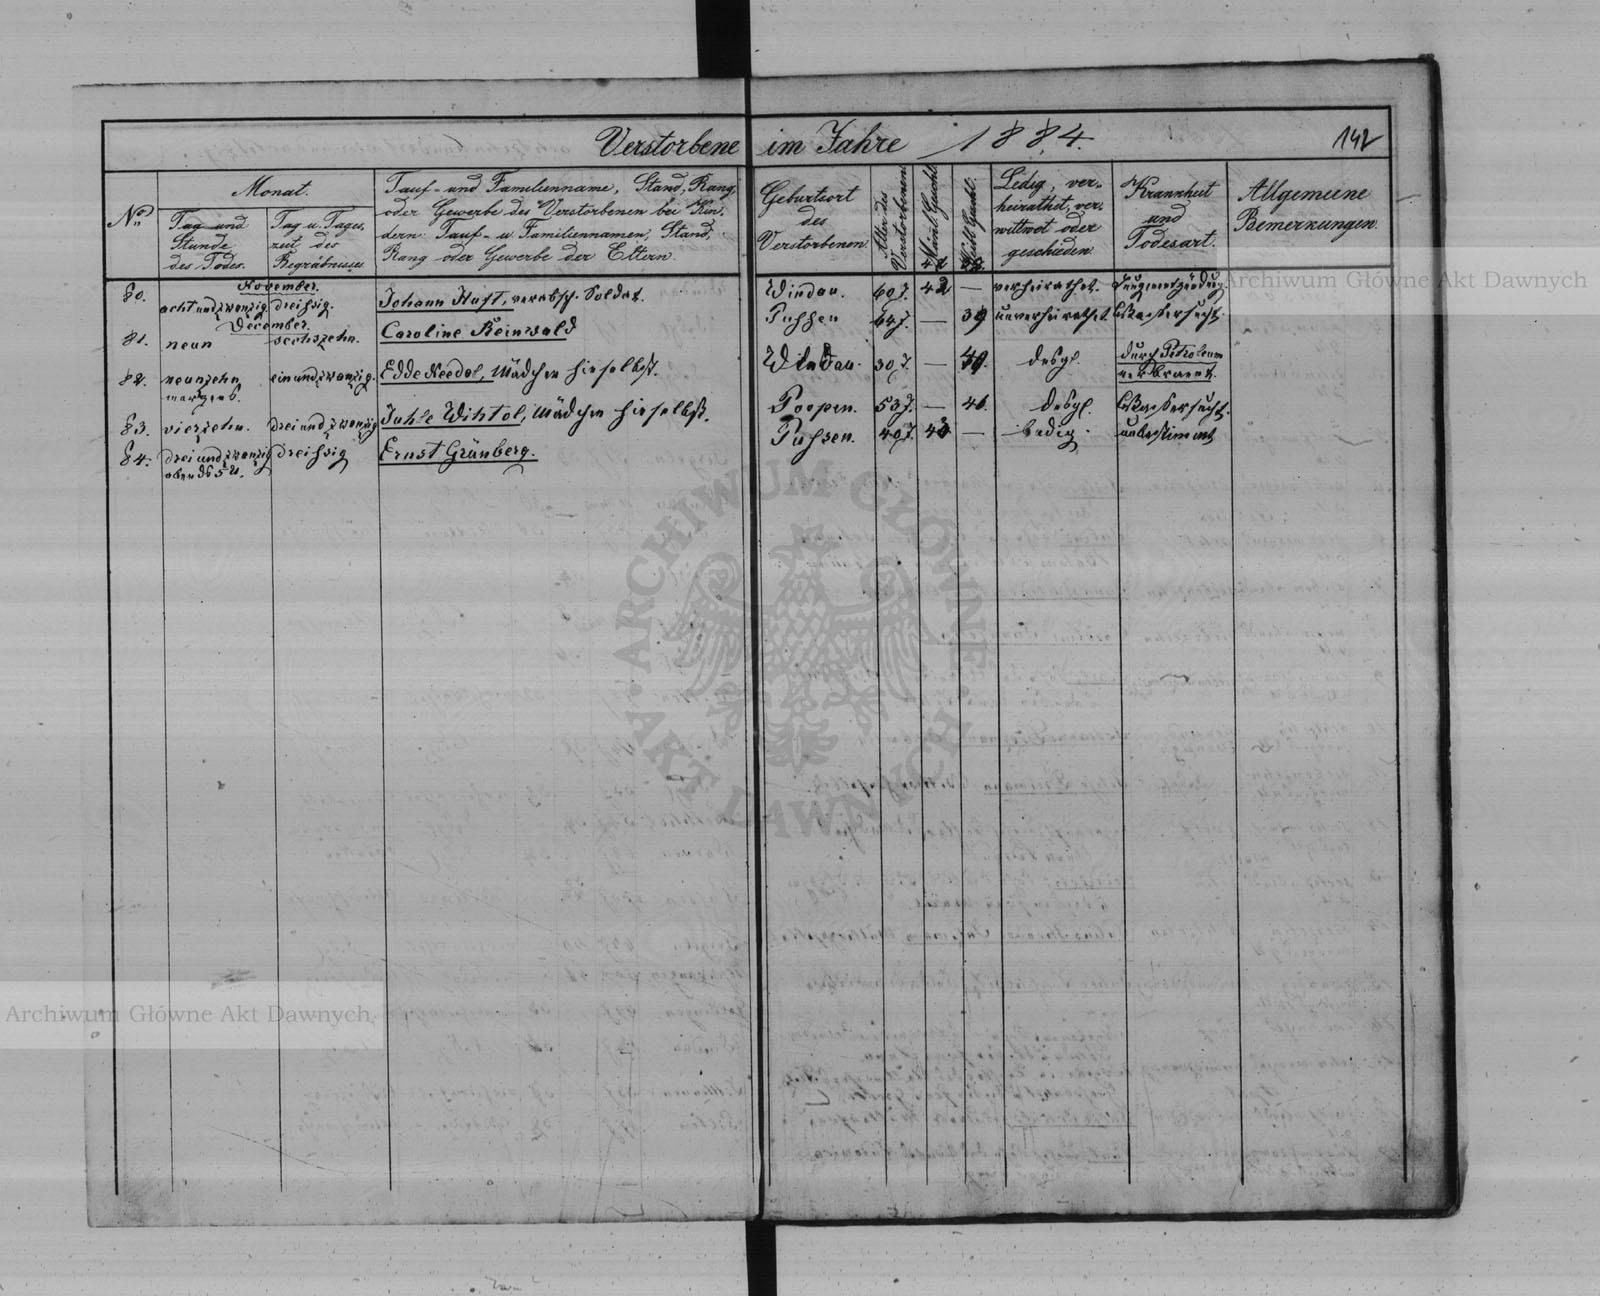 Verstorbene im Jahre 1884.
142
No
Monat.
Tag und
Stunde
des Todes.
Tag u. Tages-
zeit des
Begräbnisses
Tauf- und Familienname, Stand, Rang,
oder Gewerbe des Verstorbenen bei Kin-
dern Tauf- u. Familiennamen, Stand,
Rang oder Gewerbe der Eltern.
Geburtsort
des
Verstorbenen.
Alter des
Verstorbenen
Männl. Geschl.
Weibl. Geschl.
Ledig, ver-
heirathet, ver-
wittwet oder
geschieden.
Krankheit
und
Todesart.
Allgemeine
Bemerkungen.
November.
80.
achtundzwanzig
dreissig.
Johann Haft, verabsch. Soldat.
Windau.
60 J.
42
—
verheirathet.
Lungenentzündung.
December.
81.
neun
sechszehn.
Caroline Reinwald
Pussen
64 J.
—
39
unverheirathet
Wassersucht.
82.
neunzehn
morgens.
einundzwanzig.
Edde Needol, Mädchen hieselbst.
Windau.
30 J.
—
40.
desgl.
durch Petroleum
verbrannt.
83.
vierzehn.
dreiundzwanzig
Juhle Wihtol, Mädchen hieselbst.
Poopen.
53 J.
—
41.
desgl.
Wassersucht.
84.
dreiundzwanzig
abends 5 U.
dreissig
Ernst Grünberg.
Pussen.
40 J.
43
—
ledig.
unbestimmt
Archiwum Główne Akt Dawnych
ARCHIWUM GŁÓWNE
AKT DAWNYCH
Archiwum Główne Akt Dawnych